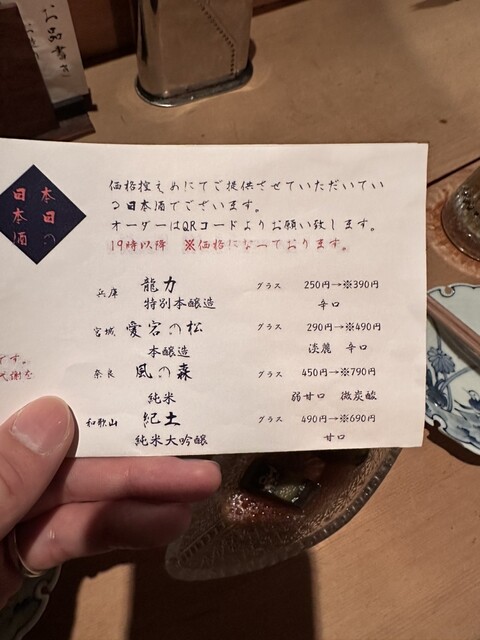 お品書き
本日の
日本酒
価格控えめにてご提供させていただいてい
る日本酒でございます。
オーダーはQRコードよりお願い致します。
19時以降 ※価格になっております。
兵庫 龍力 グラス 250円→※390円
特別本醸造 辛口
宮城 愛宕の松 グラス 290円→※490円
本醸造 淡麗 辛口
です。
奈良 風の森 グラス 450円→※790円
純米 弱甘口 微炭酸
和歌山 紀土 グラス 490円→※690円
純米大吟醸 甘口